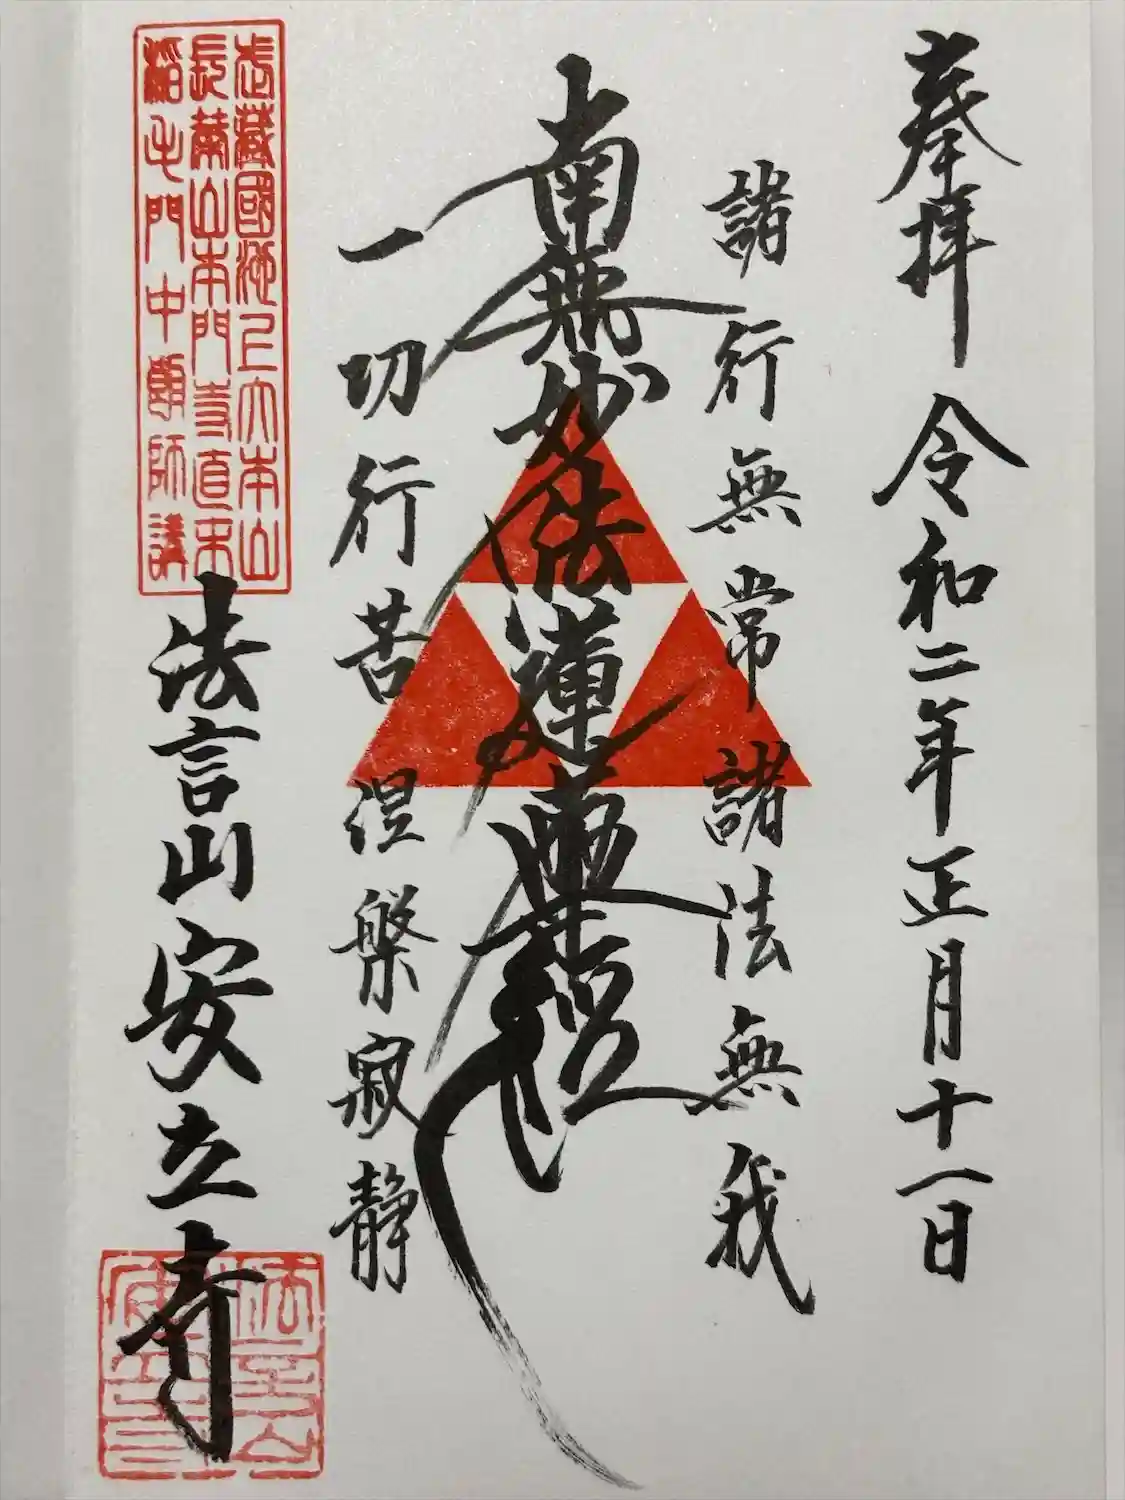 奉拝 令和二年正月十一日
諸行無常 諸法無我
南無妙法蓮華経
一切行苦 涅槃寂静
武蔵國池上大本山
長榮山本門寺直末
稲毛門中願師講
法言山 安立寺
法言山
安立寺